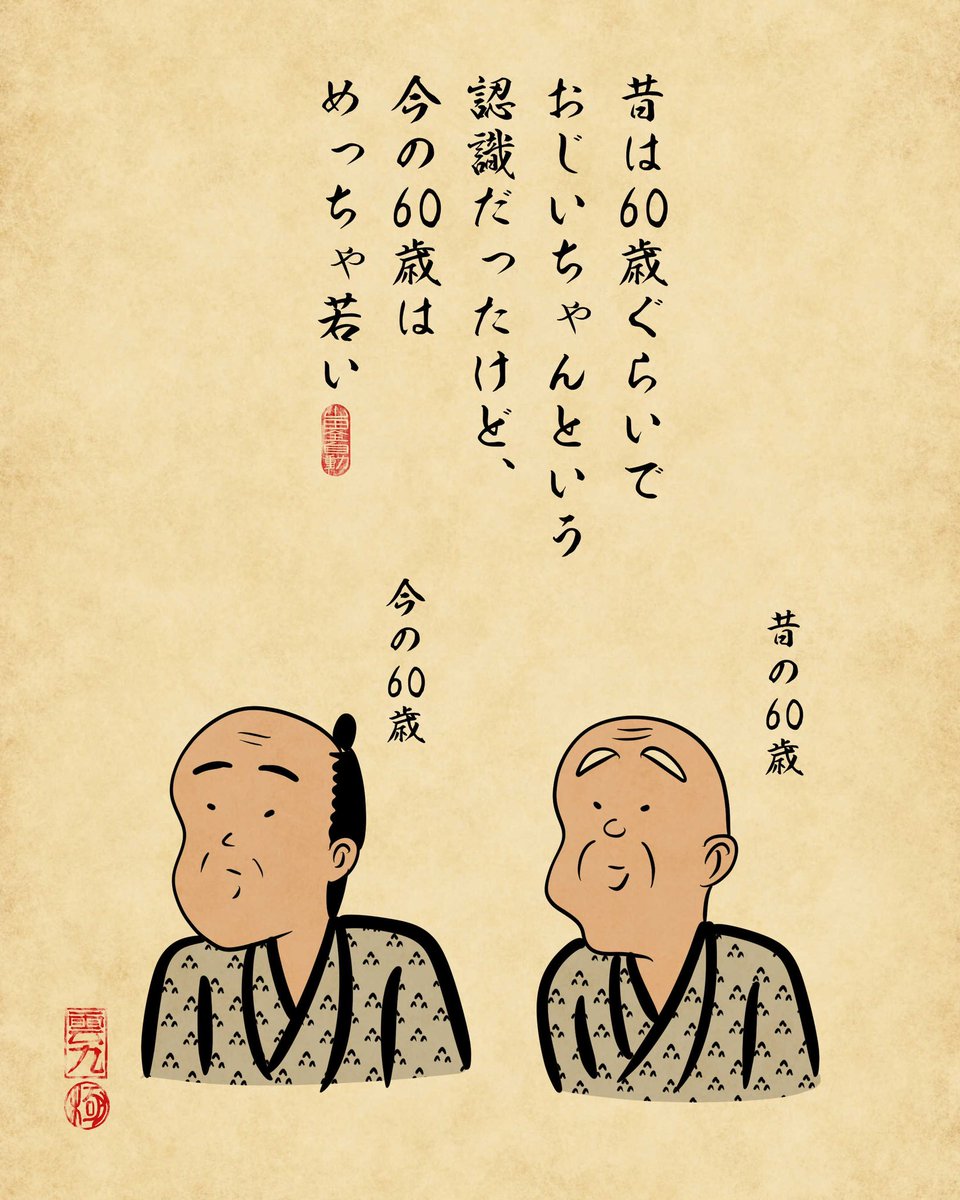 昔は60歳ぐらいで
おじいちゃんという
認識だったけど、
今の60歳は
めっちゃ若い
昔の60歳
今の60歳